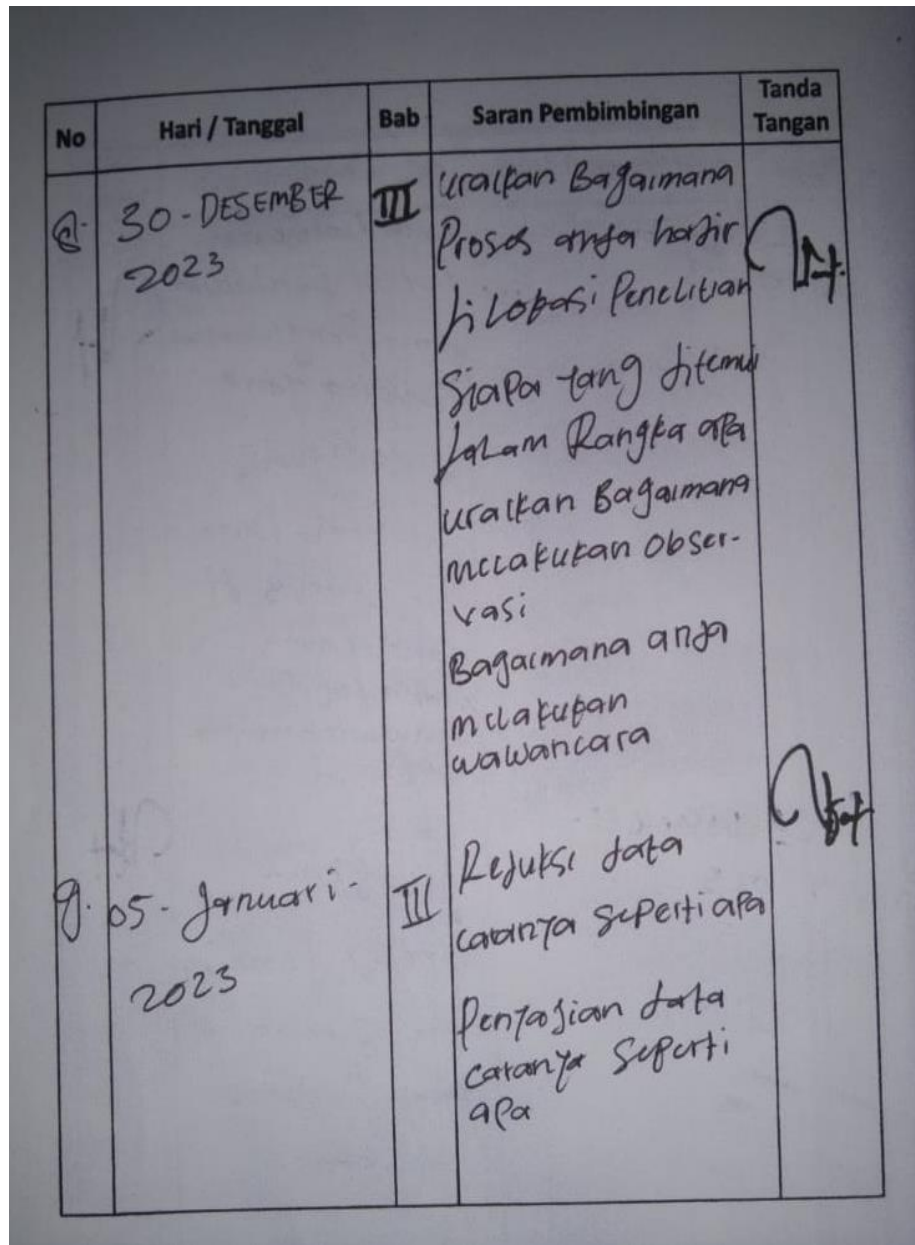 No Hari / Tanggal Bab Saran Pembimbingan Tanda Tangan
8. 30 - DESEMBER 2023 III
Uraikan Bagaimana
Proses anda hadir
di Lokasi Penelitian
Siapa yang ditemui
dalam Rangka apa
uraikan Bagaimana
melakukan Obser-
vasi
Bagaimana anda
melakukan
wawancara
9. 05 - Januari - 2023 III
Reduksi data
caranya seperti apa
Penyajian data
caranya seperti
apa